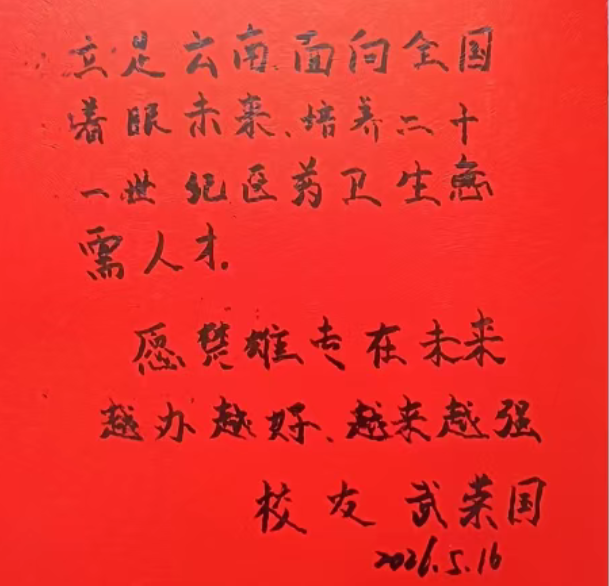 立足云南、面向全国
着眼未来、培养二十
一世纪医药卫生急
需人才.
愿楚雄专在未来
越办越好、越来越强
校友 武荣国
2026.5.16